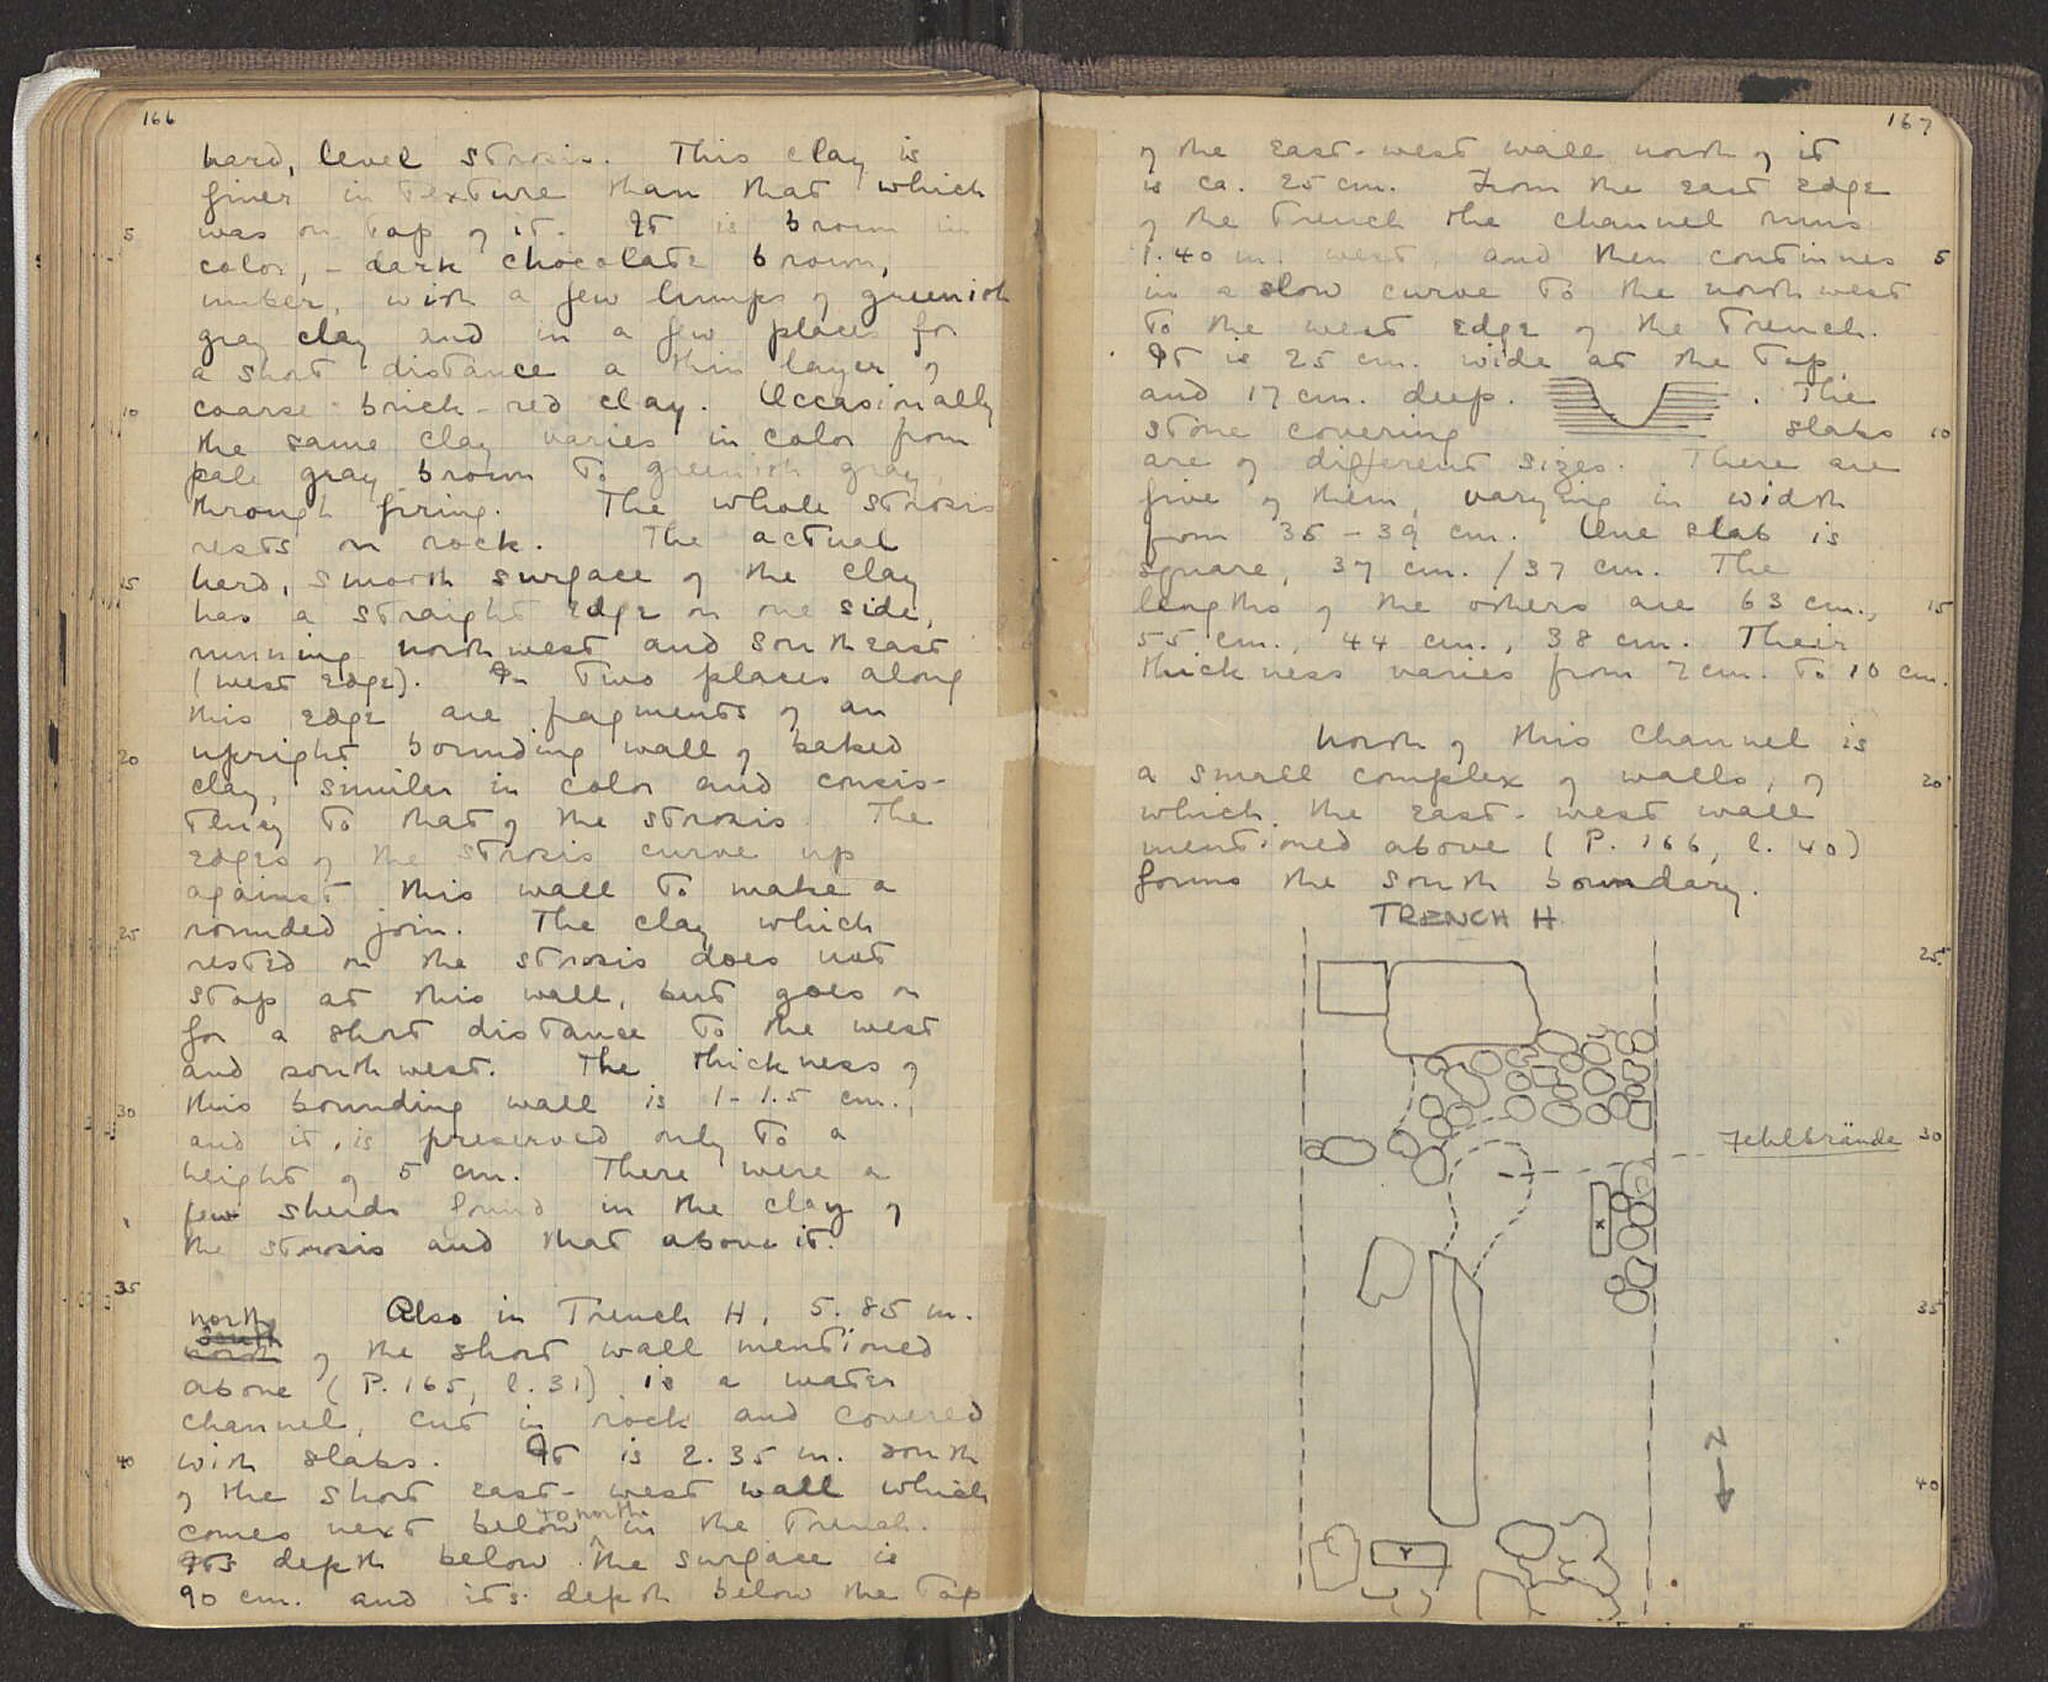 166
hard, level strosis. This clay is
finer in texture than that which
5 was on top of it. It is brown in
color, - dark chocolate brown,
umber, with a few lumps of greenish
gray clay and in a few places for
a short distance a thin layer of
10 coarse brick-red clay. Occasionally
the same clay varies in color from
pale gray brown to greenish gray,
through firing. The whole strosis
rests on rock. The actual
15 hard, smooth surface of the clay
has a straight edge on one side,
running northwest and southeast
(west edge). In two places along
this edge are fragments of an
20 upright bounding wall of baked
clay, similar in color and consis-
tency to that of the strosis. The
edges of the strosis curve up
against this wall to make a
25 rounded join. The clay which
rested on the strosis does not
stop at this wall, but goes on
for a short distance to the west
and southwest. The thickness of
30 this bounding wall is 1-1.5 cm.,
and it is preserved only to a
height of 5 cm. There were a
few sherds found in the clay of
the strosis and that above it.
35
Also in Trench H, 5.85 m.
north
south
north of the short wall mentioned
above (P. 165, l. 31) is a water
channel, cut in rock and covered
40 with slabs. It is 2.35 m. south
of the short east-west wall which
comes next below, to north in the trench.
Its depth below the surface is
90 cm. and its depth below the top
167
of the east-west wall north of it
is ca. 25 cm. From the east edge
of the trench the channel runs
1.40 m. west, and then continues 5
in a slow curve to the northwest
to the west edge of the trench.
It is 25 cm. wide at the top
and 17 cm. deep. . The
stone covering slabs 10
are of different sizes. There are
five of them, varying in width
from 35-39 cm. One slab is
square, 37 cm. / 37 cm. The
lengths of the others are 63 cm., 15
55 cm., 44 cm., 38 cm. Their
thickness varies from 7 cm. to 10 cm.
North of this channel is
a small complex of walls, of 20
which the east-west wall
mentioned above (P. 166, l. 40)
forms the south boundary.
TRENCH H
25
Fehlbrände 30
X
35
N
40
Y